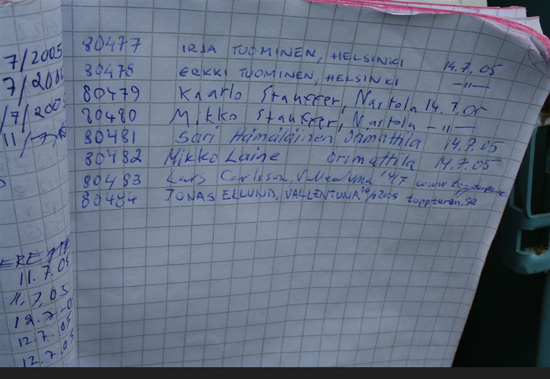 7/2005
80477 IRJA TUOMINEN, HELSINKI 14.7.05
80478 ERKKI TUOMINEN, HELSINKI —"—
80479 Kaarlo Stauffer, Nastola 14.7.05
80480 Mikko Stauffer, Nastola —"—
80481 Sari Hämäläinen Orimattila 14.7.05
80482 Mikko Laine Orimattila 14.7.05
80483 Lars Carlsson, Vallentuna 14/7
80484 JONAS ELLUND, VALLENTUNA 14/7 2005 toppturen.se
11.7.05
11.7.05
12.7.05
12.7.05